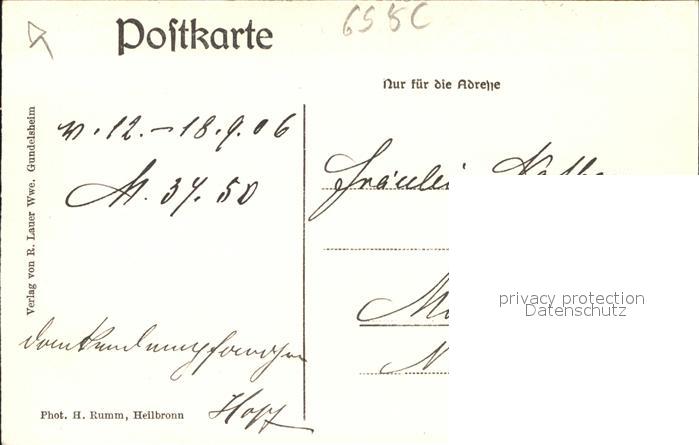 655C
Postkarte
Nur für die Adresse
v. 12. – 18. 9. 06
M. 37. 50
Fräulein
privacy protection
Datenschutz
dankend empfangen
Hopf
Verlag von R. Lauer Wwe. Gundelsheim
Phot. H. Rumm, Heilbronn